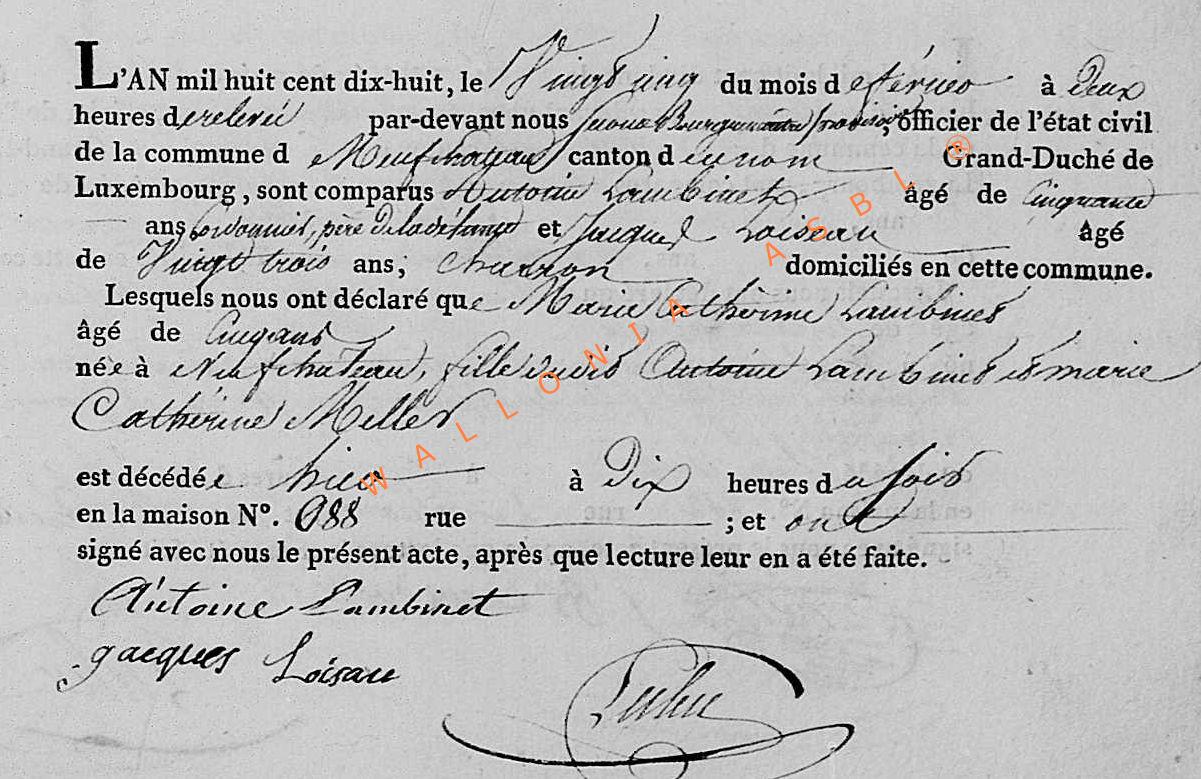 L'AN mil huit cent dix-huit, le Vingt cinq du mois de février à deux
heures de relevée par-devant nous second Bourguemaitre provisoire, officier de l'état civil
de la commune d Neufchateau canton de ce nom Grand-Duché de
Luxembourg, sont comparus Antoine Lambinet âgé de Cinquante
ans Cordonnier, père de la défunte et Jacques Loiseau âgé
de Vingt trois ans, charron domiciliés en cette commune.
Lesquels nous ont déclaré que Marie Catherine Lambinet
âgé de Cinq ans
née à Neufchateau, fille dudit Antoine Lambinet et marie
Catherine Meller
est décédée hier à Dix heures du soir
en la maison N°. 88 rue ; et ont
signé avec nous le présent acte, après que lecture leur en a été faite.
Antoine Lambinet
jacques Loisau
WALLONIA ASBL ®